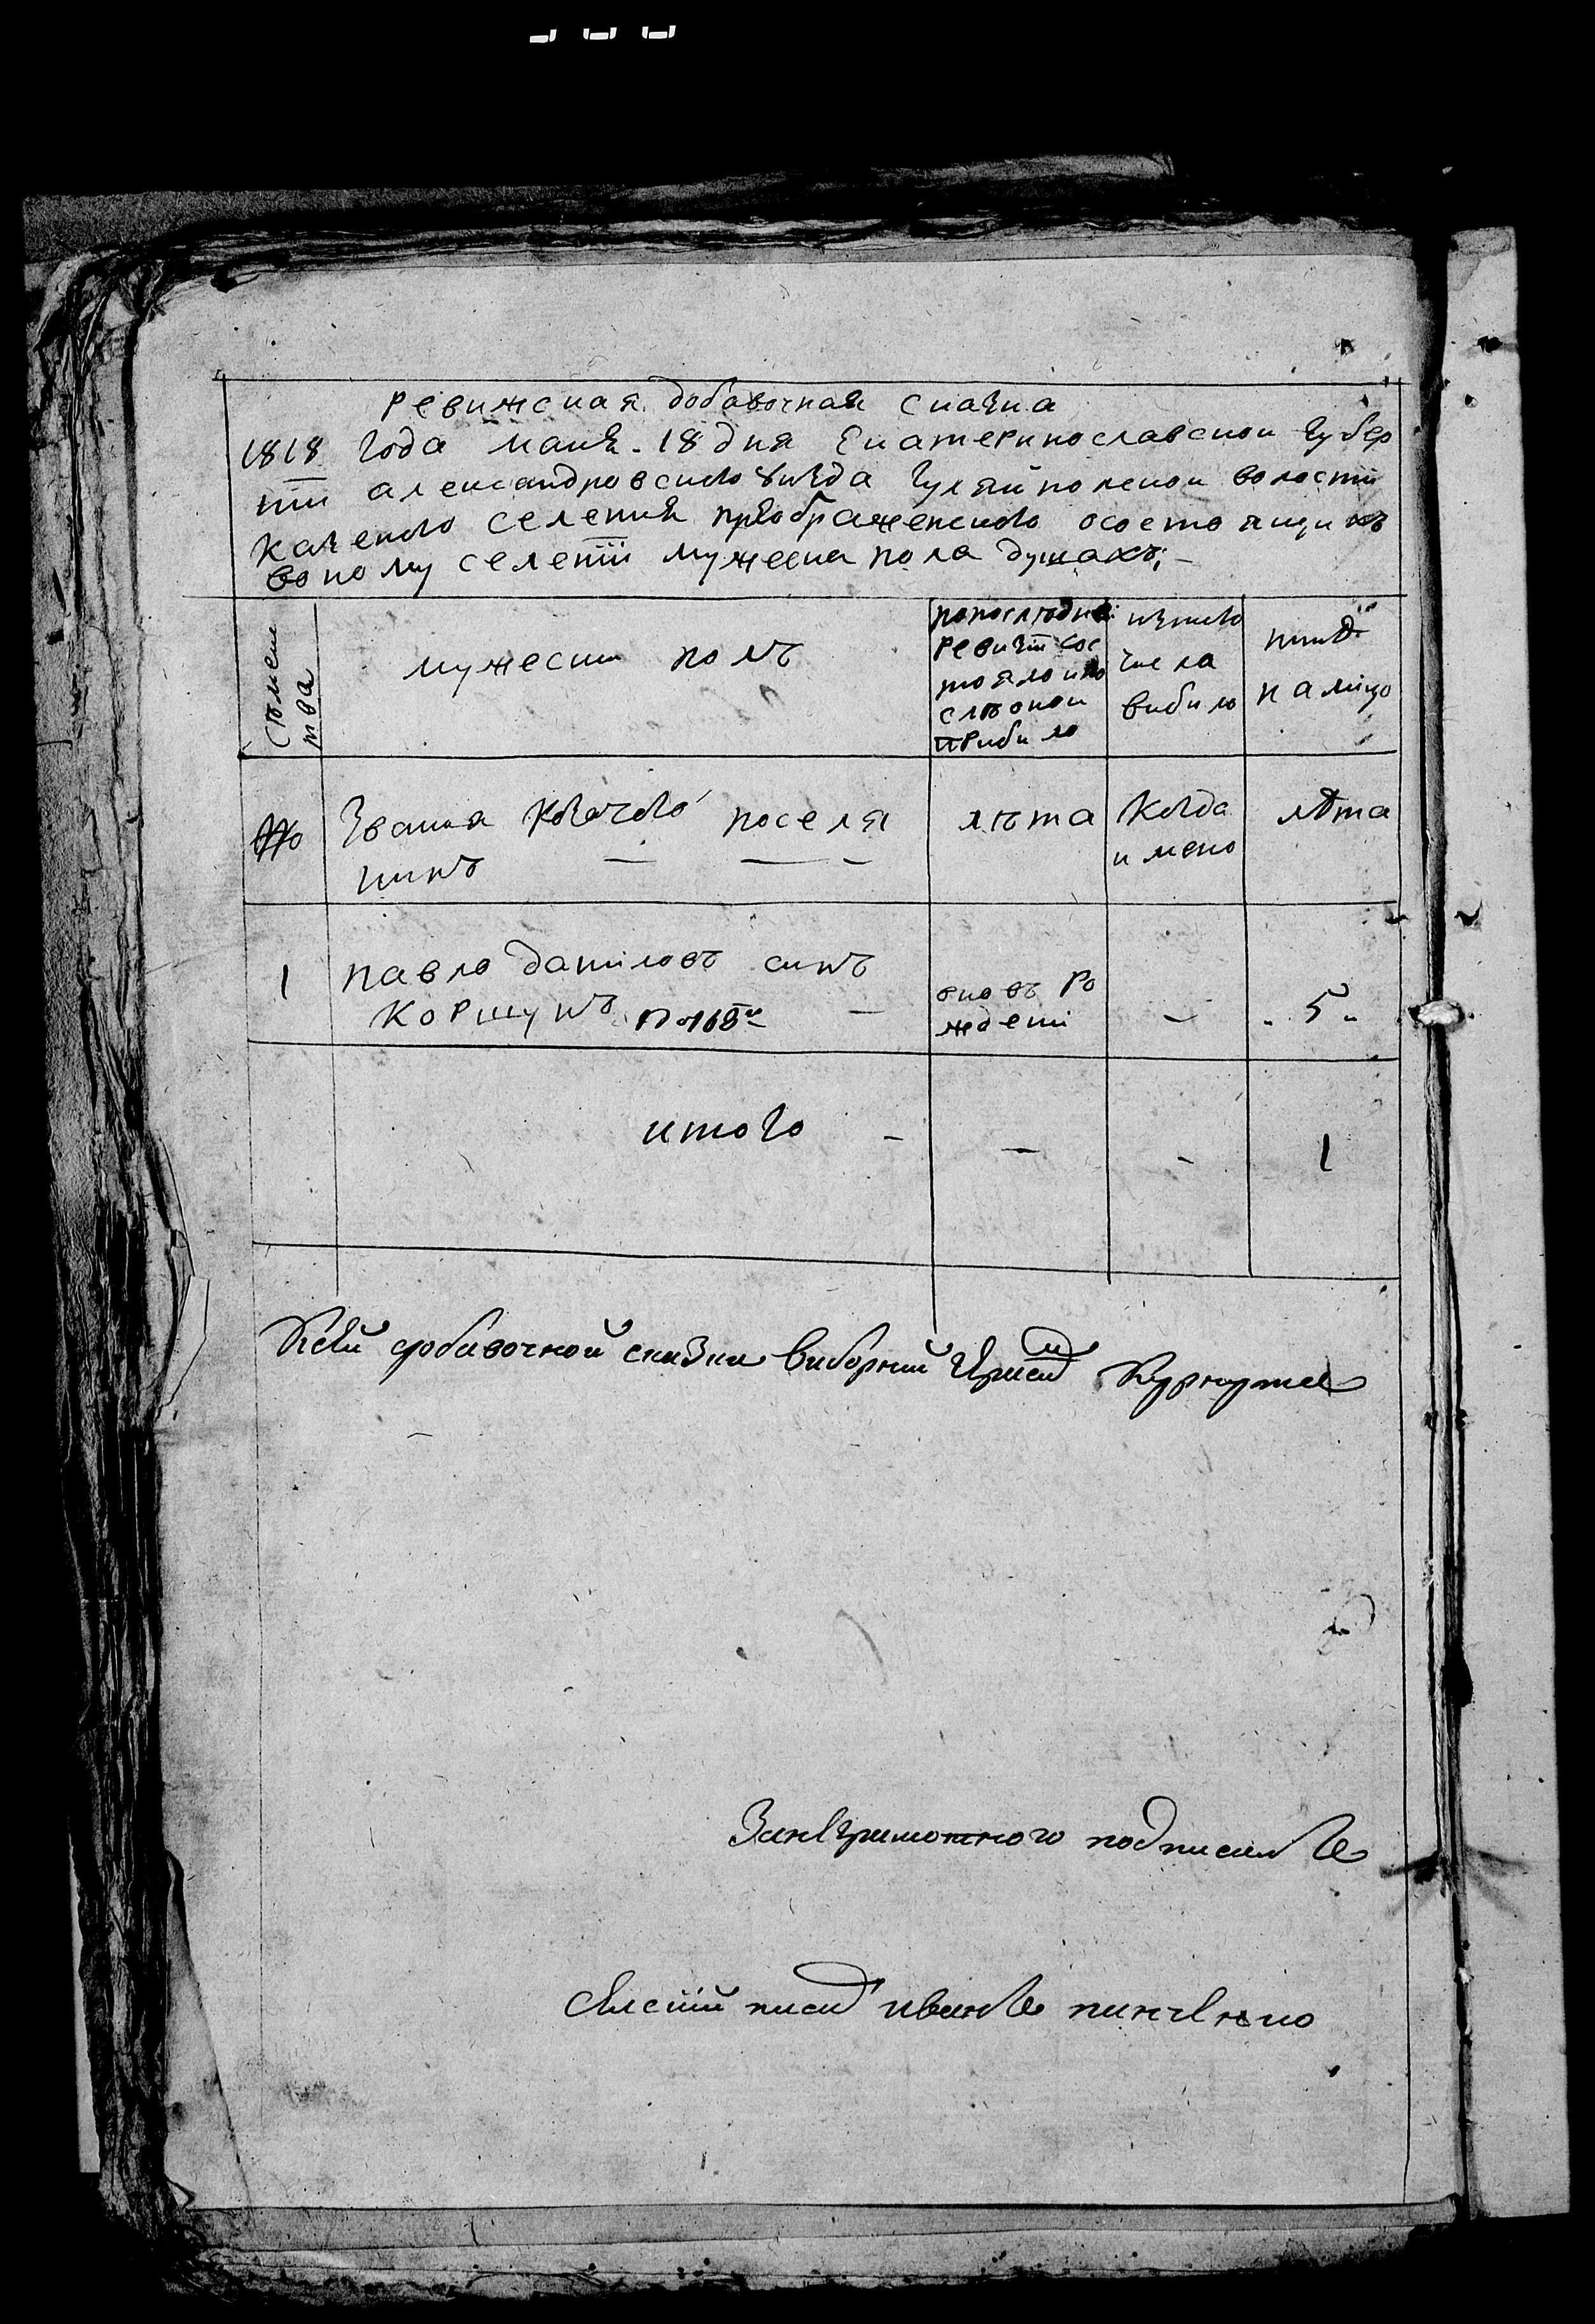 ревижская добавочная сказка
1818 года мaия 18 дня Екатеринославскои губер
нии александровского уизда гуляйполскои волости
казеного селения преображенского осостоящихъ
воному селении мужеска пола душахъ;
Сѣмеи
ства
мужески полъ
попослѣдней
ревизии сос
тояло ипо
слѣ онои
прибило
изъ того
числа
вибило
нинѣ
налицо
№
Звания Козачого поселя
нинъ
лѣта
Когда
имено
лѣта
1
павло даниловъ синъ
Коршунъ
вновъ ро
ждени
5
итого
1
Ксей добавочной сказки виборний Курнута
Занеграмотного подписалъ
писар иванъ